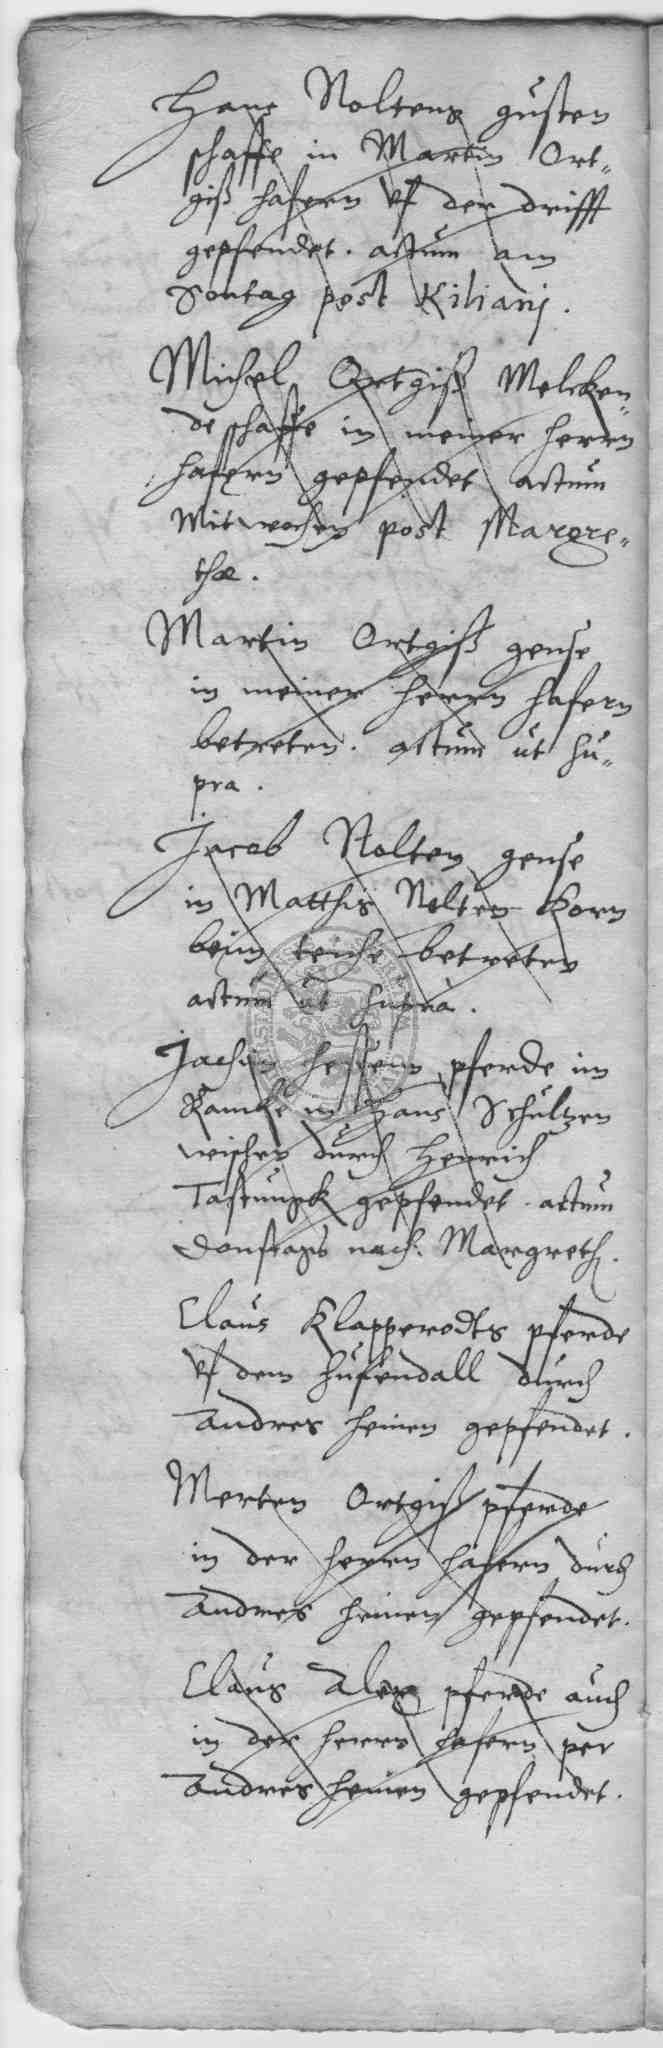 Hans Noltens güsten
schaffe in Martin Ort„
giß hafern vf der drifft
gepfendet. actum am
Sontag post Kiliani.
Michel Ortgiß Melcken„
de schaffe in meiner herrn
hafern gepfendet actum
Mitwochen post Margre„
thæ.
Martin Ortgiß gense
in meiner herrn hafern
betreten. actum ut su„
pra.
Jacob Nolten gense
in Matthis Nolten Korn
beim teiche betreten
actum ut suprà.
Jachim pferde im
in Hans Schultzen
wischen durch Henrich
Tastungk gepfendet. actum
Donstags nach Margreth.
Claus Klapperodts pferde
vf dem hufendall durch
Andres heinen gepfendet.
Merten Ortgiß pferde
in der herrn hafern durch
Andres heinen gepfendet.
Claus Alex pferde auch
in der herrn hafern per
Andres heinen gepfendet.